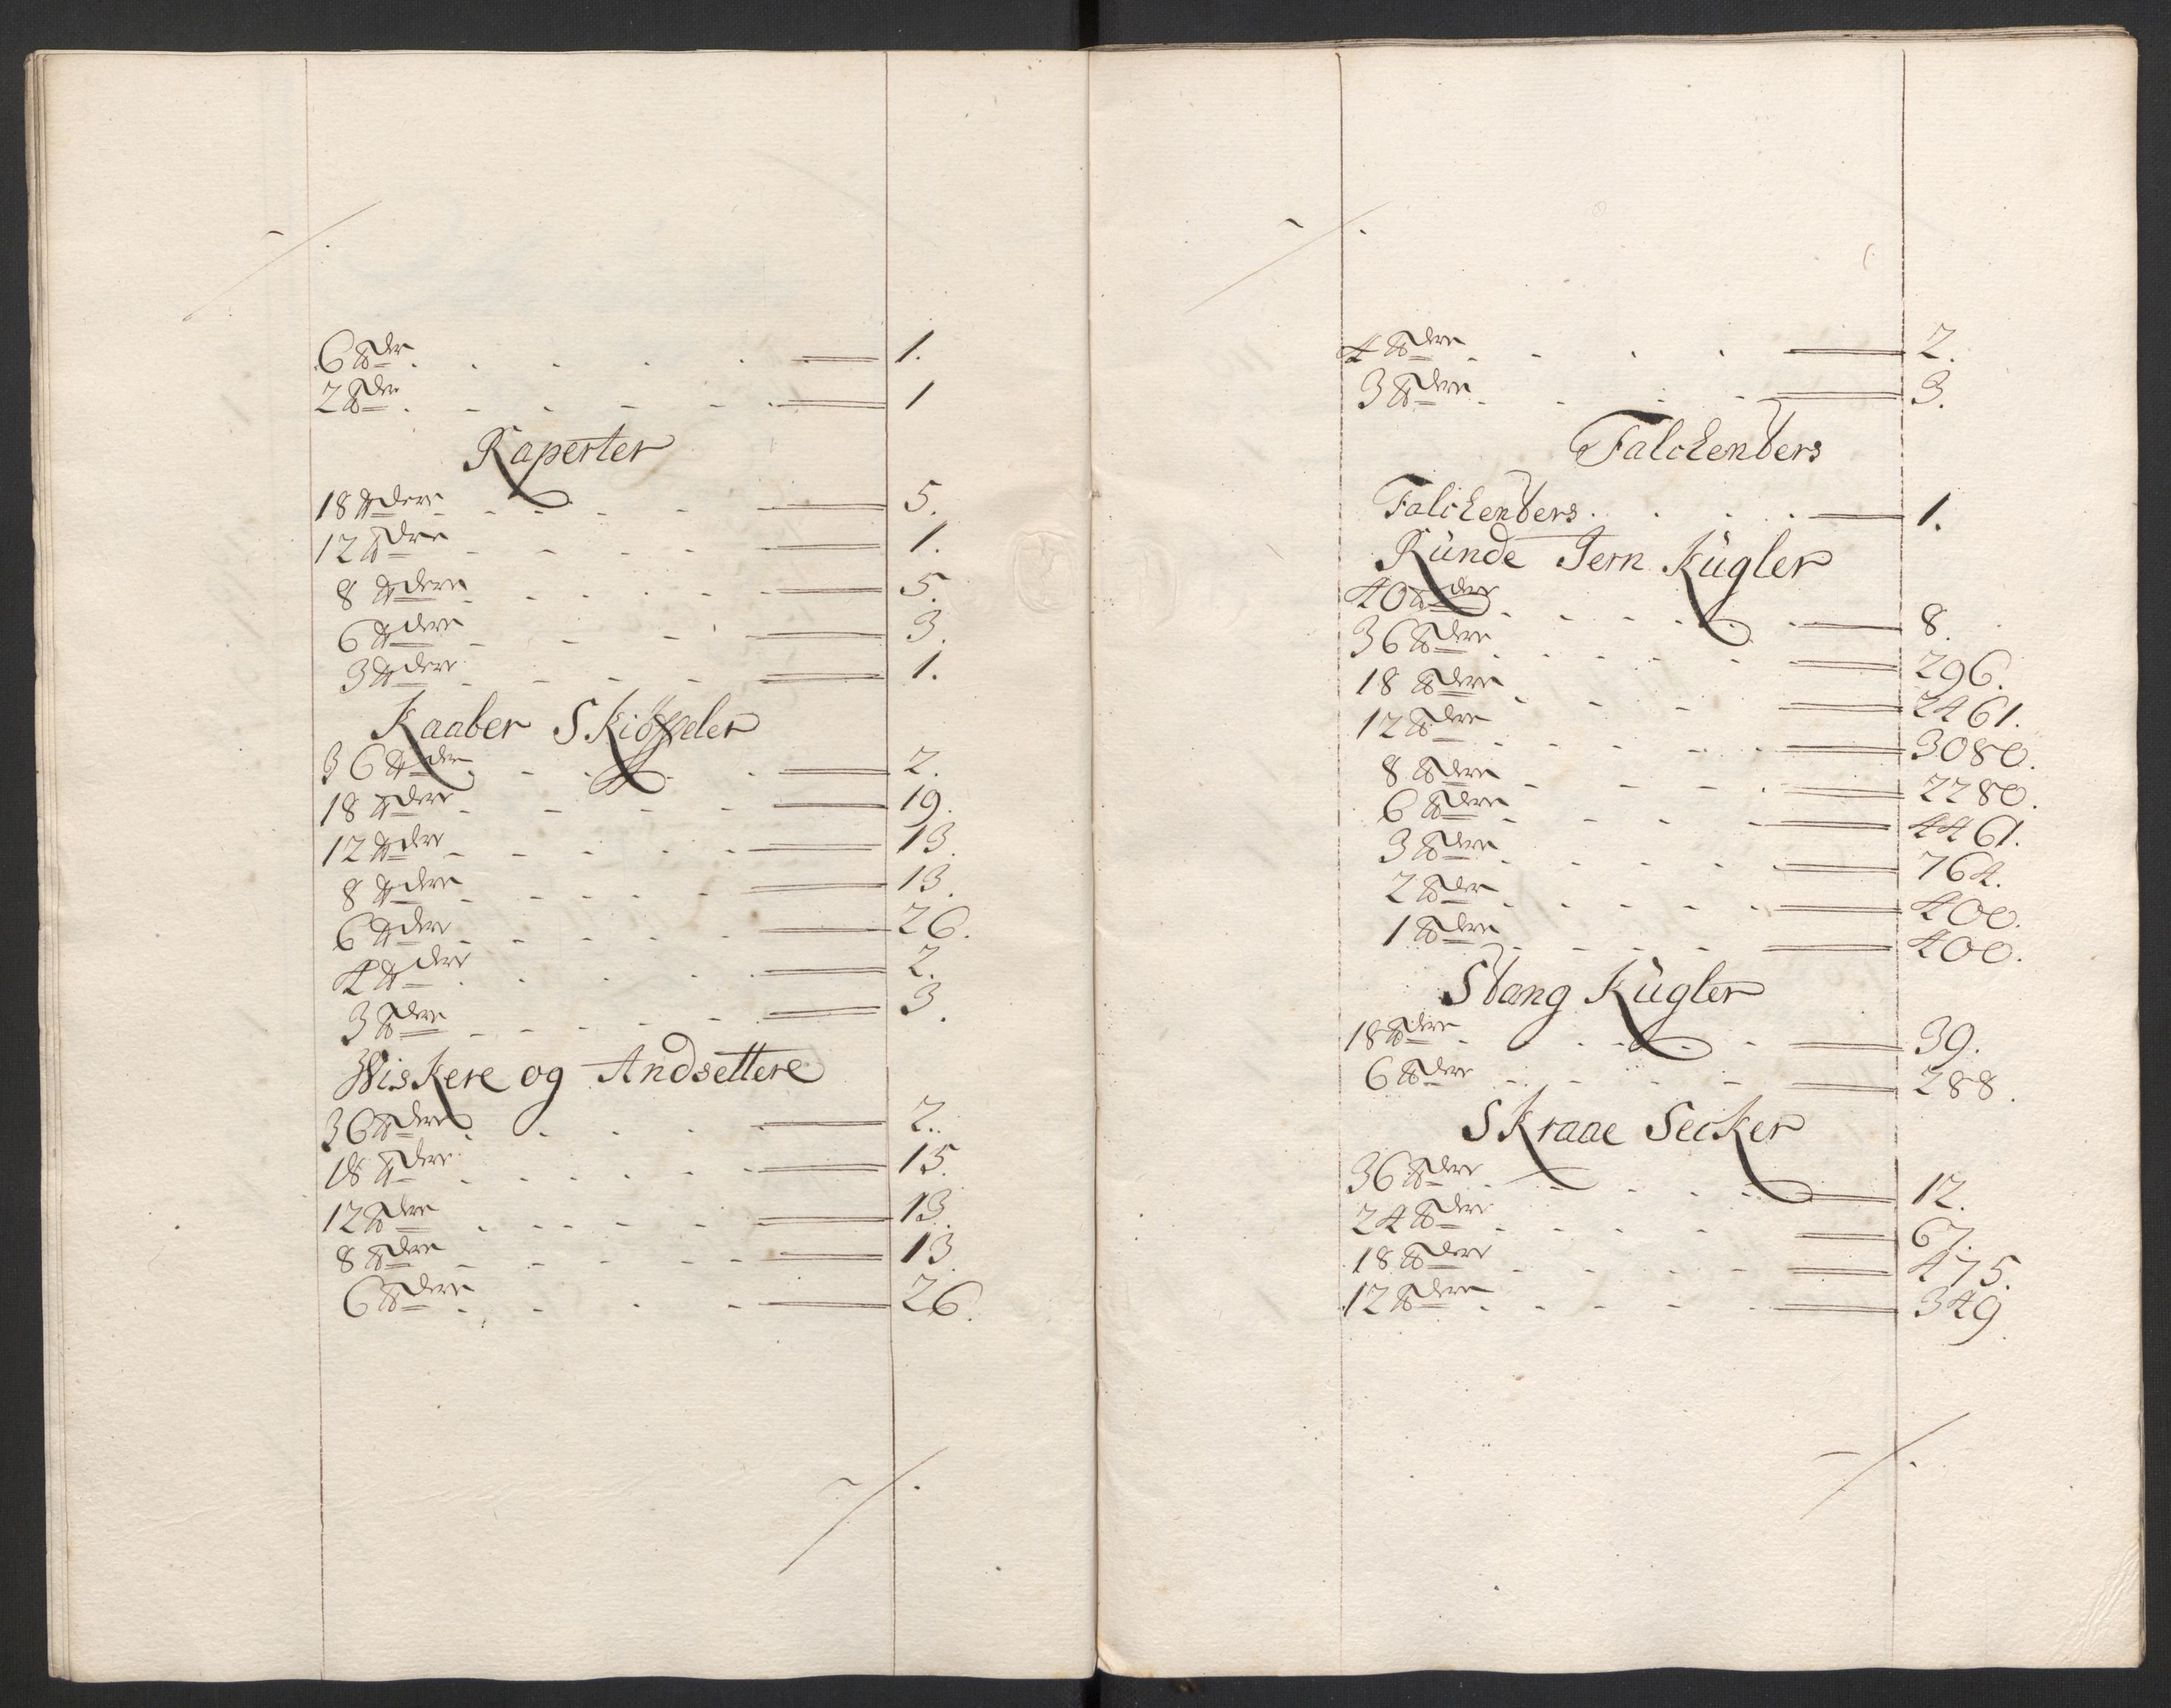 6 ℔der . . . . . 1.
2 ℔der . - . - - . 1
Raperter
18 ℔dere - - - - - 5.
12 ℔dere - - - - 1.
8 ℔dere - - . . - - 5.
6 ℔dere - - - ' 3.
3 ℔dere - - - - 1.
Kaaber Skiöffeler
36 ℔der . - . . . 2.
18 ℔dere - - - - - 19.
12 ℔dere - - - . - 13.
8 ℔dere - . - - - 13.
6 ℔dere - - . . - 26.
4 ℔dere . . . . . 2.
3 ℔dere - - - - - 3.
Wiskere og Andsettere
36 ℔dere . . . . . 2.
18 ℔dere . . . . - 15.
12 ℔dere . - - - - 13.
8 ℔dere - - - - - 13.
6 ℔dere . - . - 26.
4 ℔dere - - . . 2.
3 ℔dere - - . - 3.
Falckenders
Falckenders . . . . 1.
Runde Jern Kugler
40 ℔der . - . - . 8.
36 ℔dere . . . . - 296.
18 ℔dere . - - . - 2461.
12 ℔dere - - - - - 3080.
8 ℔dere - - - . 2280.
6 ℔dere - - - - 4461.
3 ℔dere . . . . . 764.
2 ℔der . . - - - 400.
1 ℔dere - - - - 400.
Stang Kugler
18 ℔dere . . . . - 39.
6 ℔dere - - - - 288.
Skraae Secker
36 ℔dere . . . . - 12.
24 ℔dere - . - - 67.
18 ℔dere - - - . - 475.
12 ℔dere . - - - - 349